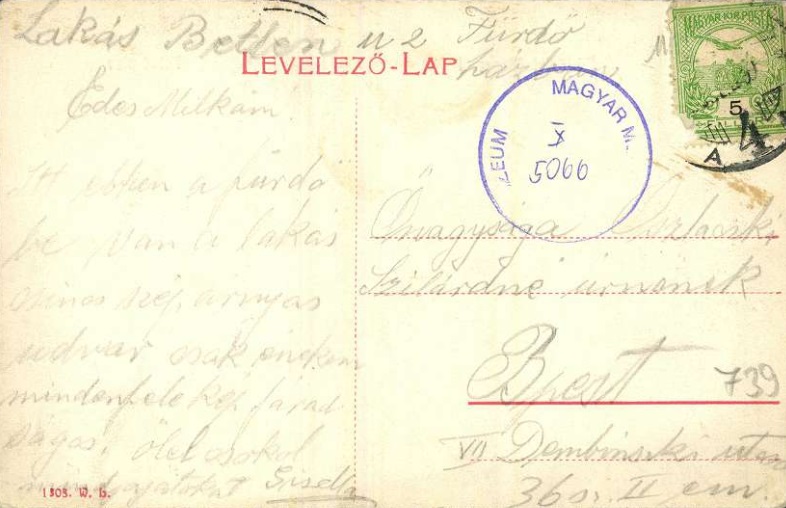 Lakás Betlen u 2 Fürdő
házban
LEVELEZŐ-LAP
Édes Milkám!
Itt ebben a fürdő
be van a lakás
csinos szép árnyas
udvar csak nekem
mindenfele kép fárad
ságos, ölel csókol
Gisella
1303. W. L.
MAGYAR M
ZEUM
X
5066
MAGYAR KIR. POSTA
5
4
A
Őnagysága
Szilárdné úrnőnek
Bpest
739
VII Dembinszki utca
36 sz. II em.